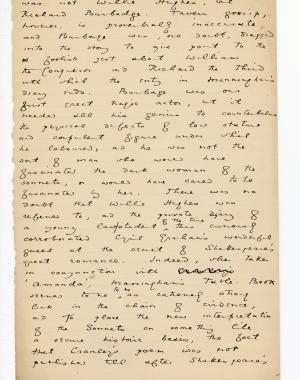 was not Willie Hughes but
Richard Burbadge. Tavern gossip,
however, is proverbially inaccurate,
and Burbage was, no doubt, dragged
into the story to give point to the
foolish jest about William
the Conqueror and Richard the Third
with which the entry in Manningham's
diary ends. Burbage was our
first great tragic actor, but it
needed all his genius to counterbalance
the physical defects of low stature
and corpulent figure under which
he laboured, and he was not the
sort of man who would have
fascinated the dark woman of the
sonnets, or would have cared to be
fascinated by her. There was no
doubt that Willie Hughes was
referred to, and the private diary of
a young law student of the time thus curiously
corroborated Cyril Graham's wonderful
guess at the secret of Shakespeare's
great romance. Indeed, when taken
in conjunction with
'Amanda', Manningham's Table-Book
seemed to me to be an extremely strong
link in the chain of evidence,
and to place the new interpretation
of the Sonnets on something like
a secure historic basis, the fact
that Cranley's poem was not
published till after Shakespeare's